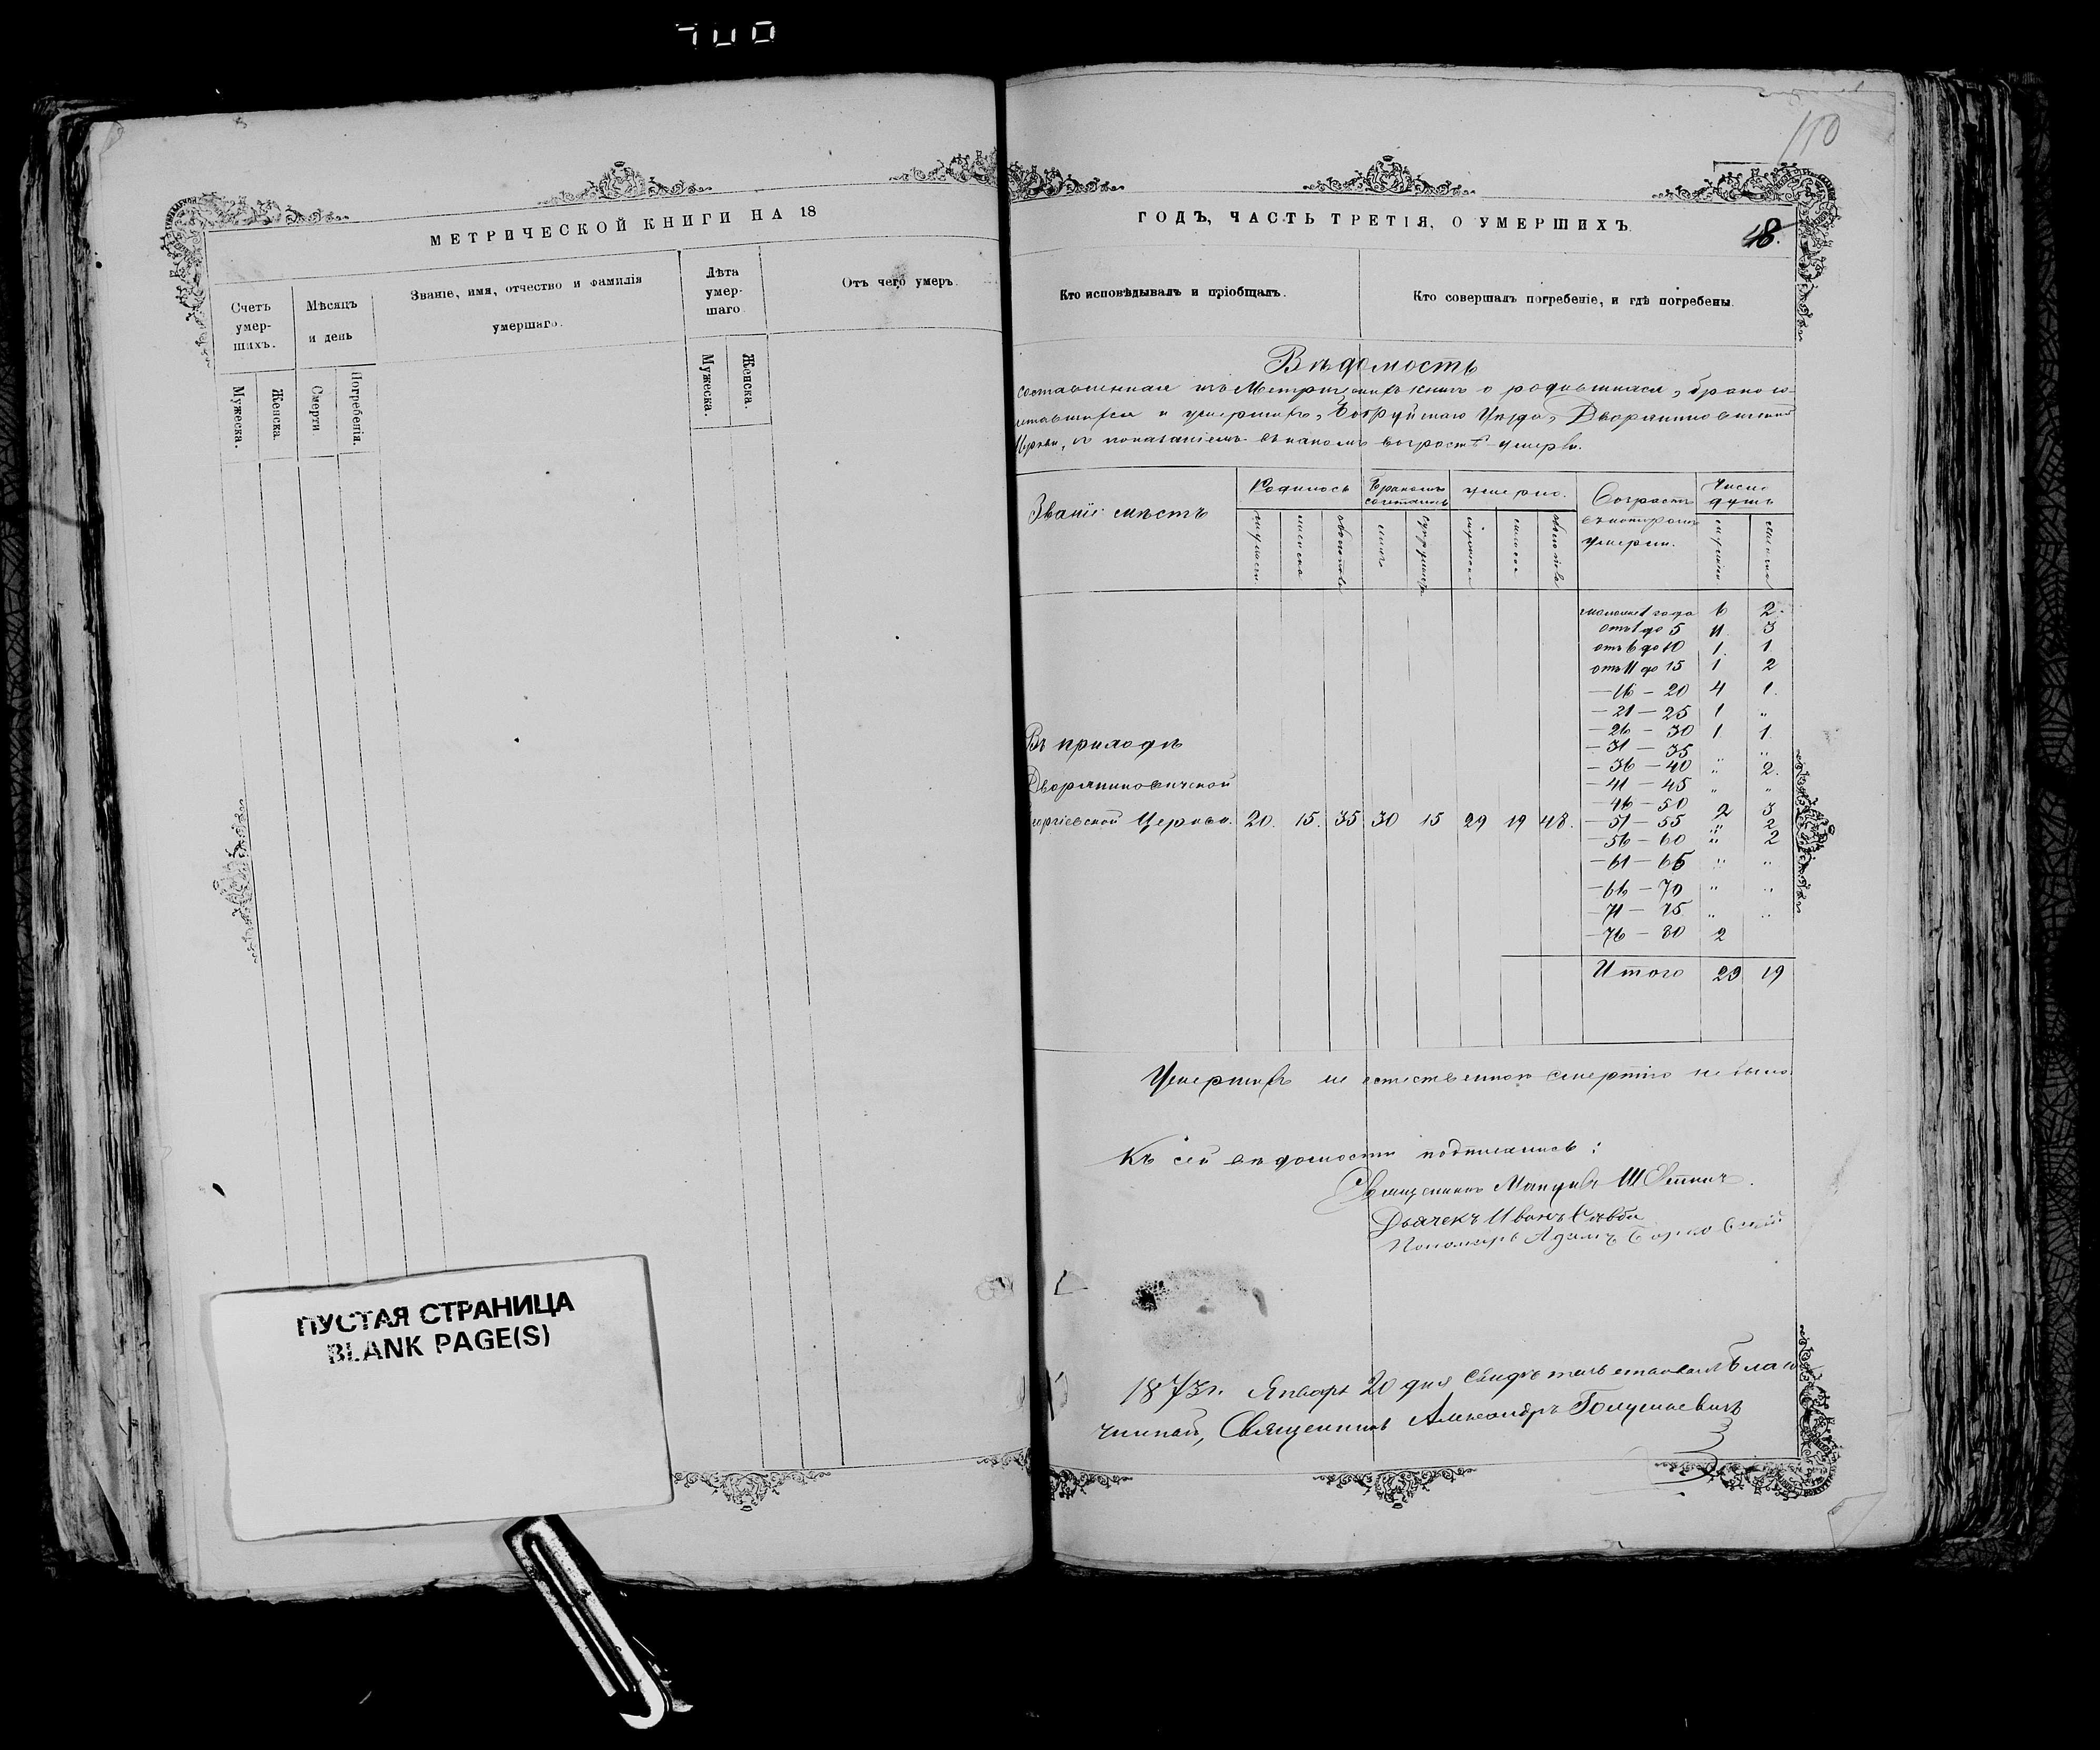 110
МЕТРИЧЕСКОЙ КНИГИ НА 18
ГОДЪ, ЧАСТЬ ТРЕТІЯ, О УМЕРШИХЪ.
48.
Счетъ умер-шихъ.
Мѣсяцъ и день
Званіе, имя, отчество и фамилія умершаго.
Лѣта умер-шаго.
Отъ чего умеръ.
Мужеска.
Женска.
Смерти
Погребенія.
Мужеска.
Женска.
Кто исповѣдывалъ и пріобщалъ.
Кто совершалъ погребеніе, и гдѣ погребены.
Вѣдомость
составленная изъ Метрич. книгъ о родившихся, бракосо-
четавшихся и умершихъ, Бобруйскаго Уѣзда, Дворяниновичской
Церкви, съ показаніемъ въ какомъ возрастѣ умерли.
Званіе мѣстъ
Родилось
Бракомъ сочеталось
умерло.
Возрастъ въ которомъ умерли.
Число душъ
мужеска
женска
обоего пола
мужеска
женска
обоего пола
мужеска
женска
моложе 1 года 6 2.
отъ 1 до 5 11 3
отъ 6 до 10 1. 1.
отъ 11 до 15 1 2
— 16 — 20 4 1.
— 21 — 25 1 „
— 26 — 30 1 1
— 31 — 35 „
— 36 — 40 „ 2.
— 41 — 45 „ „
— 46 — 50 2 3
— 51 — 55 „ 2
— 56 — 60 „ 2
— 61 — 65 „ „
— 66 — 70 „ „
— 71 — 75 „ „
— 76 — 80 2
Въ приходѣ
Дворяниновичской
Георгіевской Церкви. 20. 15. 35 30 15 29 19 48.
Итого 29 19
Умершихъ не естественною смертію не было
Къ сей вѣдомости подписались:
Священникъ
Дьячекъ Иванъ
Пономарь Адамъ
1873 г. Января 20 дня свидѣтельствовалъ Благо
чинный, Священникъ Александръ
ПУСТАЯ СТРАНИЦА
BLANK PAGE(S)